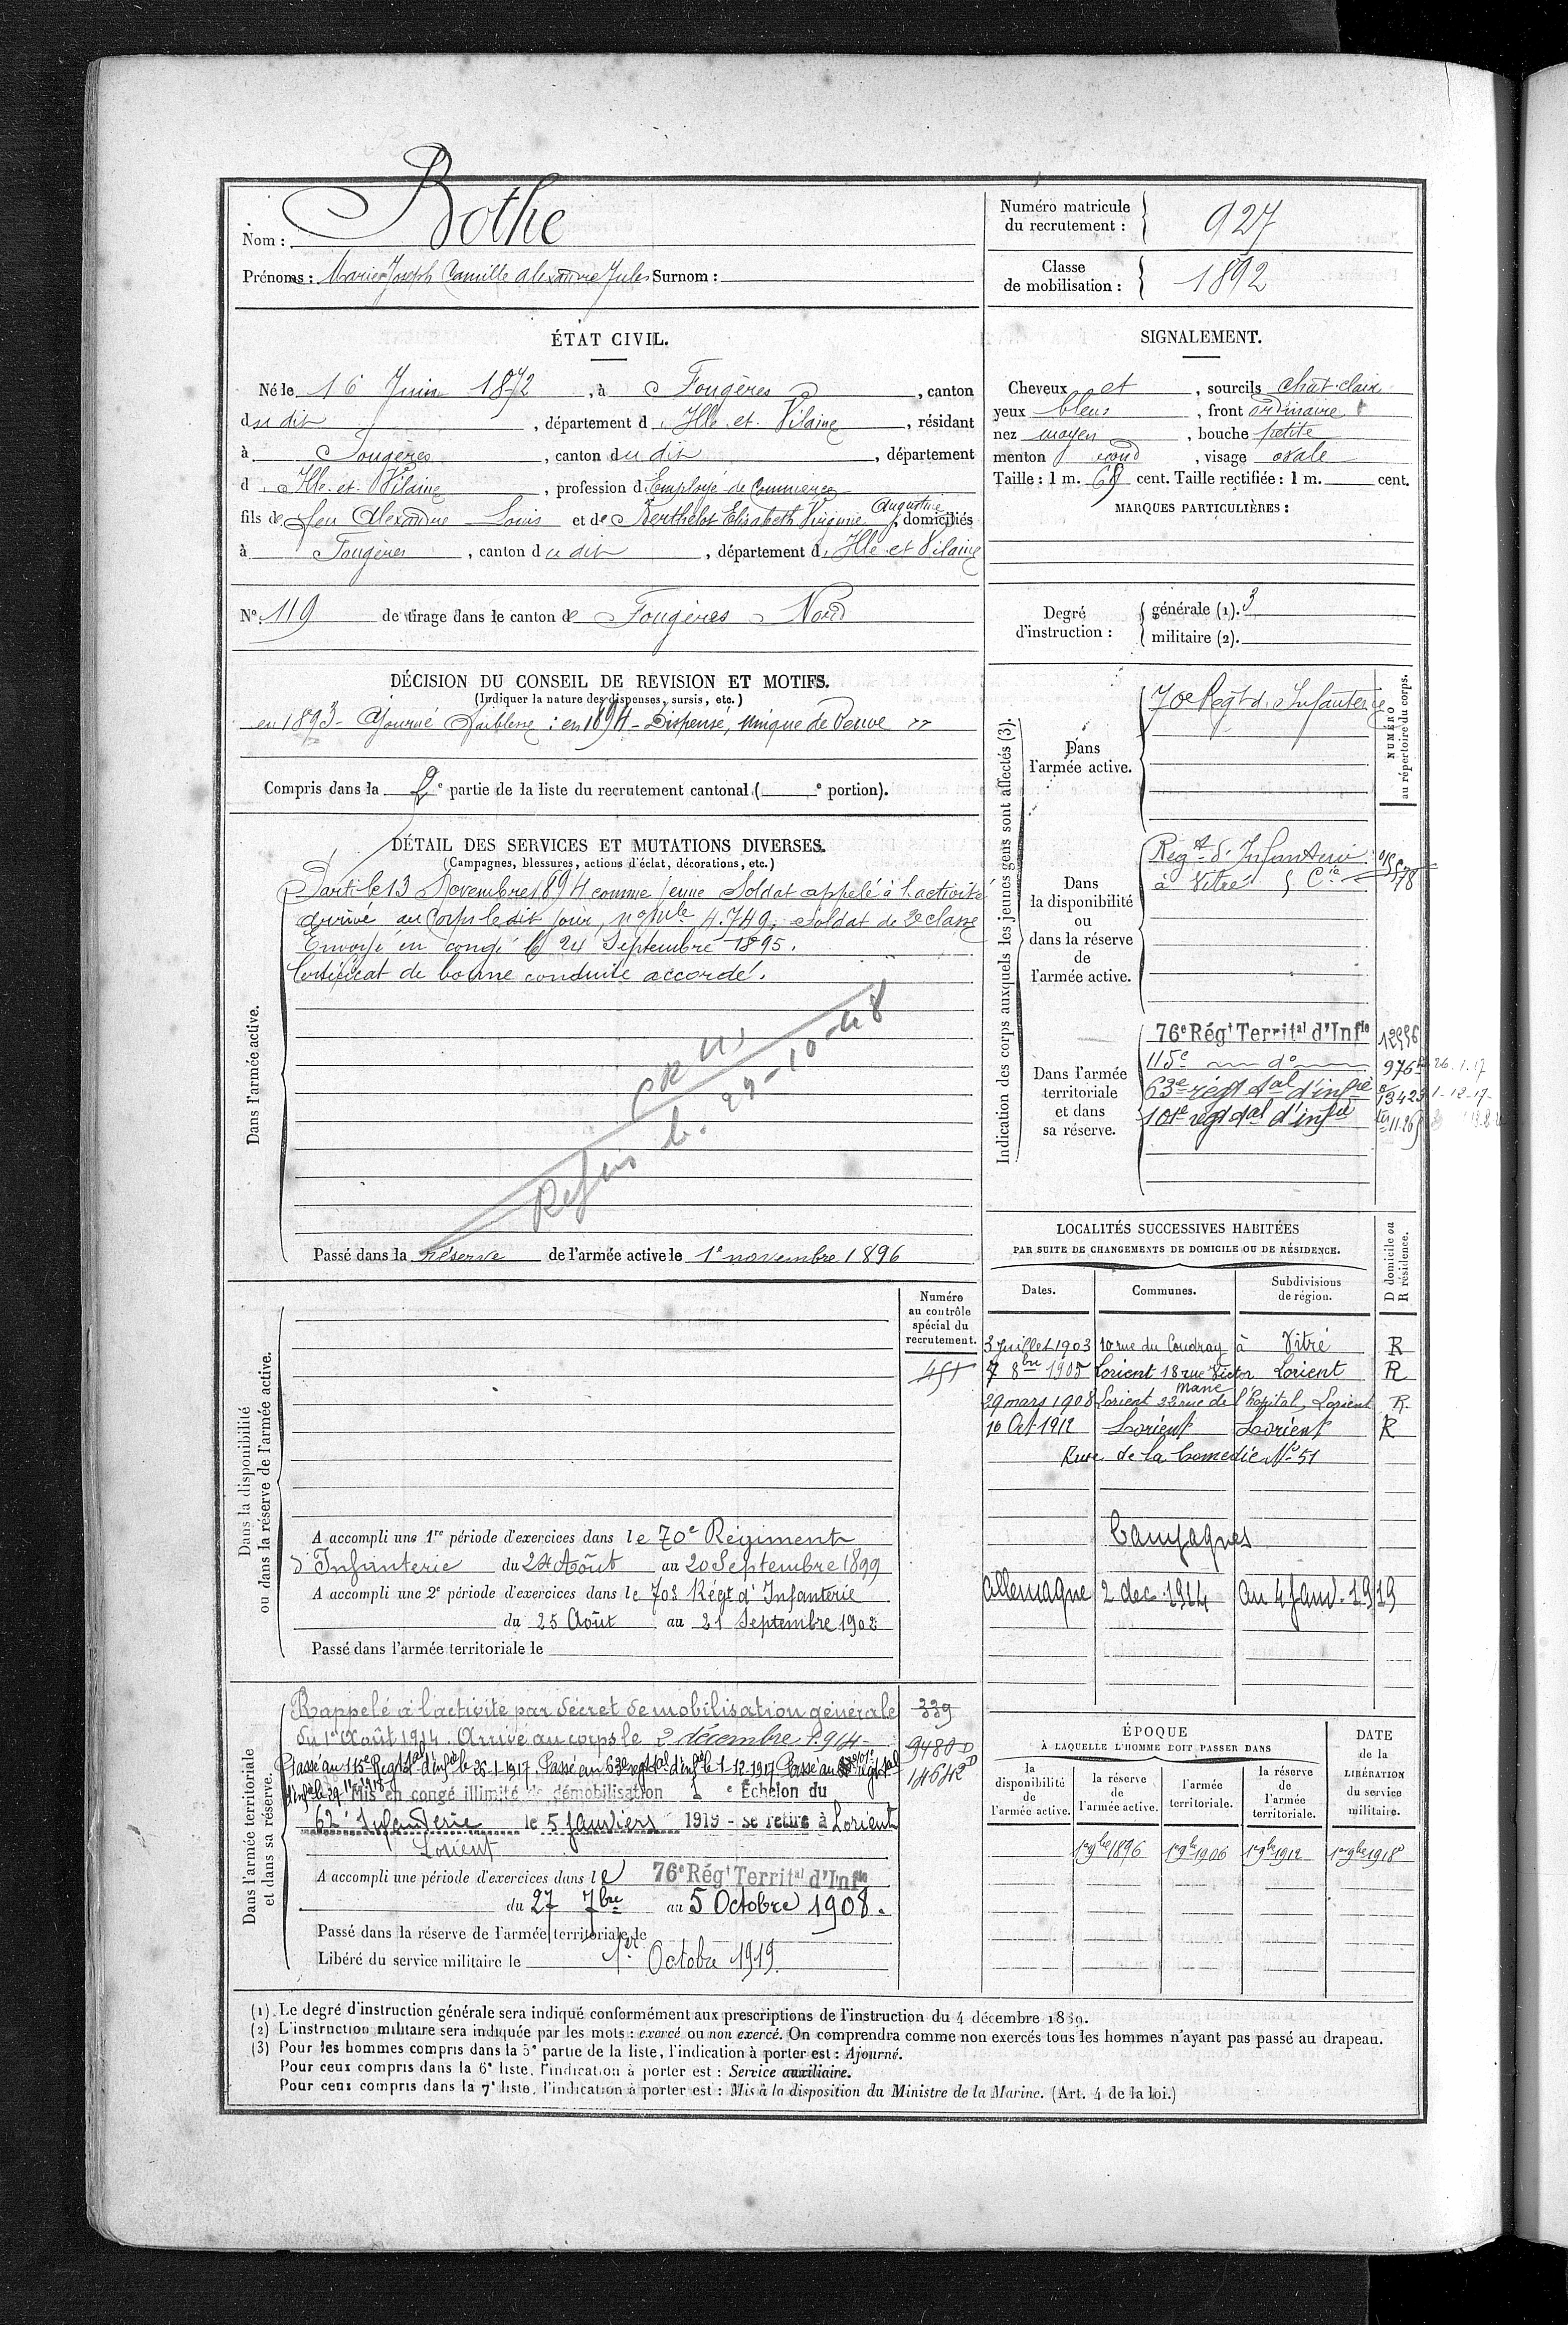 Nom : Bothe
Prénoms : Marie Joseph Camille Alexandre Jules Surnom :
Numéro matricule du recrutement : 927
Classe de mobilisation : 1892
ÉTAT CIVIL.
Né le 16 Juin 1872, à Fougères, canton
du dit, département d'Ille et Vilaine, résidant
à Fougères, canton du dit, département
d'Ille et Vilaine, profession d'Employé de Commerce
fils de feu Alexandre Louis et de Berthelot Elisabeth Virginie Augustine, domiciliés
à Fougères, canton du dit, département d'Ille et Vilaine
N° 119 de tirage dans le canton de Fougères Nord
SIGNALEMENT.
Cheveux et , sourcils chat. clair
yeux bleus, front ordinaire
nez moyen, bouche petite
menton rond, visage ovale
Taille : 1 m. 68 cent. Taille rectifiée : 1 m. cent.
MARQUES PARTICULIÈRES :
Degré d'instruction : générale (1). 3
militaire (2).
DÉCISION DU CONSEIL DE REVISION ET MOTIFS.
(Indiquer la nature des dispenses, sursis, etc.)
en 1893 - Ajourné faiblesse : en 1894 - Dispensé, unique de Veuve
Compris dans la 2e partie de la liste du recrutement cantonal ( e portion).
DÉTAIL DES SERVICES ET MUTATIONS DIVERSES.
(Campagnes, blessures, actions d'éclat, décorations, etc.)
Dans l'armée active.
Parti le 13 Novembre 1894 comme jeune Soldat appelé à l'activité
arrivé au Corps ledit jour, n° mle 4.749, Soldat de 2e classe
Envoyé en congé le 24 Septembre 1895.
Certificat de bonne conduite accordé.
Refus
29-10-48
Passé dans la réserve de l'armée active le 1er novembre 1896
Indication des corps auxquels les jeunes gens sont affectés (3).
NUMÉRO au répertoire du corps.
Dans l'armée active.
70e Régt d'Infanterie
Dans la disponibilité ou dans la réserve de l'armée active.
Régt d'Infanterie
à Vitré
Dans l'armée territoriale et dans sa réserve.
76e Régt Territal d'Infie
115e d°
26.1.17
63e régt tal d'infie 13423 1-12-17
101e régt tal d'infie
LOCALITÉS SUCCESSIVES HABITÉES
PAR SUITE DE CHANGEMENTS DE DOMICILE OU DE RÉSIDENCE.
Dates. Communes. Subdivisions de région. D domicile ou R résidence.
3 Juillet 1903 10 rue du Coudray à Vitré R
7 8bre 1905 Lorient 18 rue Victor Massé Lorient R
29 mars 1908 Lorient 22 rue de l'hôpital, Lorient R
10 Oct 1912 Lorient Lorient R
Rue de la Comédie N° 51
Campagnes
Allemagne 2 dec. 1914 au 4 Janv. 1919
Dans la disponibilité ou dans la réserve de l'armée active.
Numéro au contrôle spécial du recrutement.
451
A accompli une 1re période d'exercices dans le 70e Régiment
d'Infanterie du 24 Août au 20 Septembre 1899
A accompli une 2e période d'exercices dans le 70e Régt d'Infanterie
du 25 Août au 21 Septembre 1902
Passé dans l'armée territoriale le
Dans l'armée territoriale et dans sa réserve.
Rappelé à l'activité par décret de mobilisation générale 339
du 1er Août 1914. Arrivé au corps le 2 décembre 1914 - 9480 D
Passé au 115e Régt tal d'infie le 26-1-1917. Passé au 63e régt tal d'infie le 1-12-1917. Passé au 101e régt tal 14642 D
Mis en congé illimité de démobilisation 1e Échelon du
62e Infanterie le 5 Janviers 1919 - se retire à Lorient
Lorient
A accompli une période d'exercices dans le 76e Régt Territal d'Infie
du 27 7bre au 5 Octobre 1908.
Passé dans la réserve de l'armée territoriale le
Libéré du service militaire le 1er Octobre 1919
ÉPOQUE
À LAQUELLE L'HOMME DOIT PASSER DANS
la disponibilité de l'armée active. la réserve de l'armée active. l'armée territoriale. la réserve de l'armée territoriale. DATE de la LIBÉRATION du service militaire.
1er 9bre 1896 1er 9bre 1906 1er 9bre 1912 1er 9bre 1918
(1) Le degré d'instruction générale sera indiqué conformément aux prescriptions de l'instruction du 4 décembre 1889.
(2) L'instruction militaire sera indiquée par les mots : exercé ou non exercé. On comprendra comme non exercés tous les hommes n'ayant pas passé au drapeau.
(3) Pour les hommes compris dans la 5e partie de la liste, l'indication à porter est : Ajourné.
Pour ceux compris dans la 6e liste, l'indication à porter est : Service auxiliaire.
Pour ceux compris dans la 7e liste, l'indication à porter est : Mis à la disposition du Ministre de la Marine. (Art. 4 de la loi.)